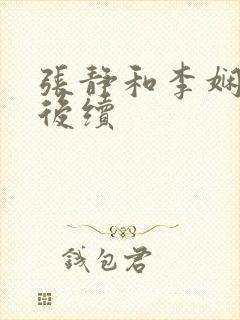 張靜和李娴
後續
钱包君